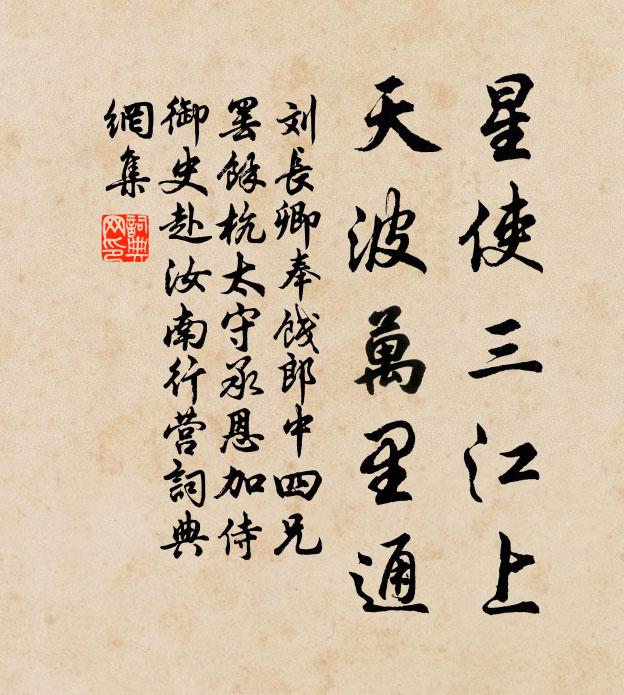 星使三江上
天波萬里通
刘長卿奉餞郎中四兄
罢餘杭太守承恩加侍
御史赴汝南行营詞典
網集
詞典網印